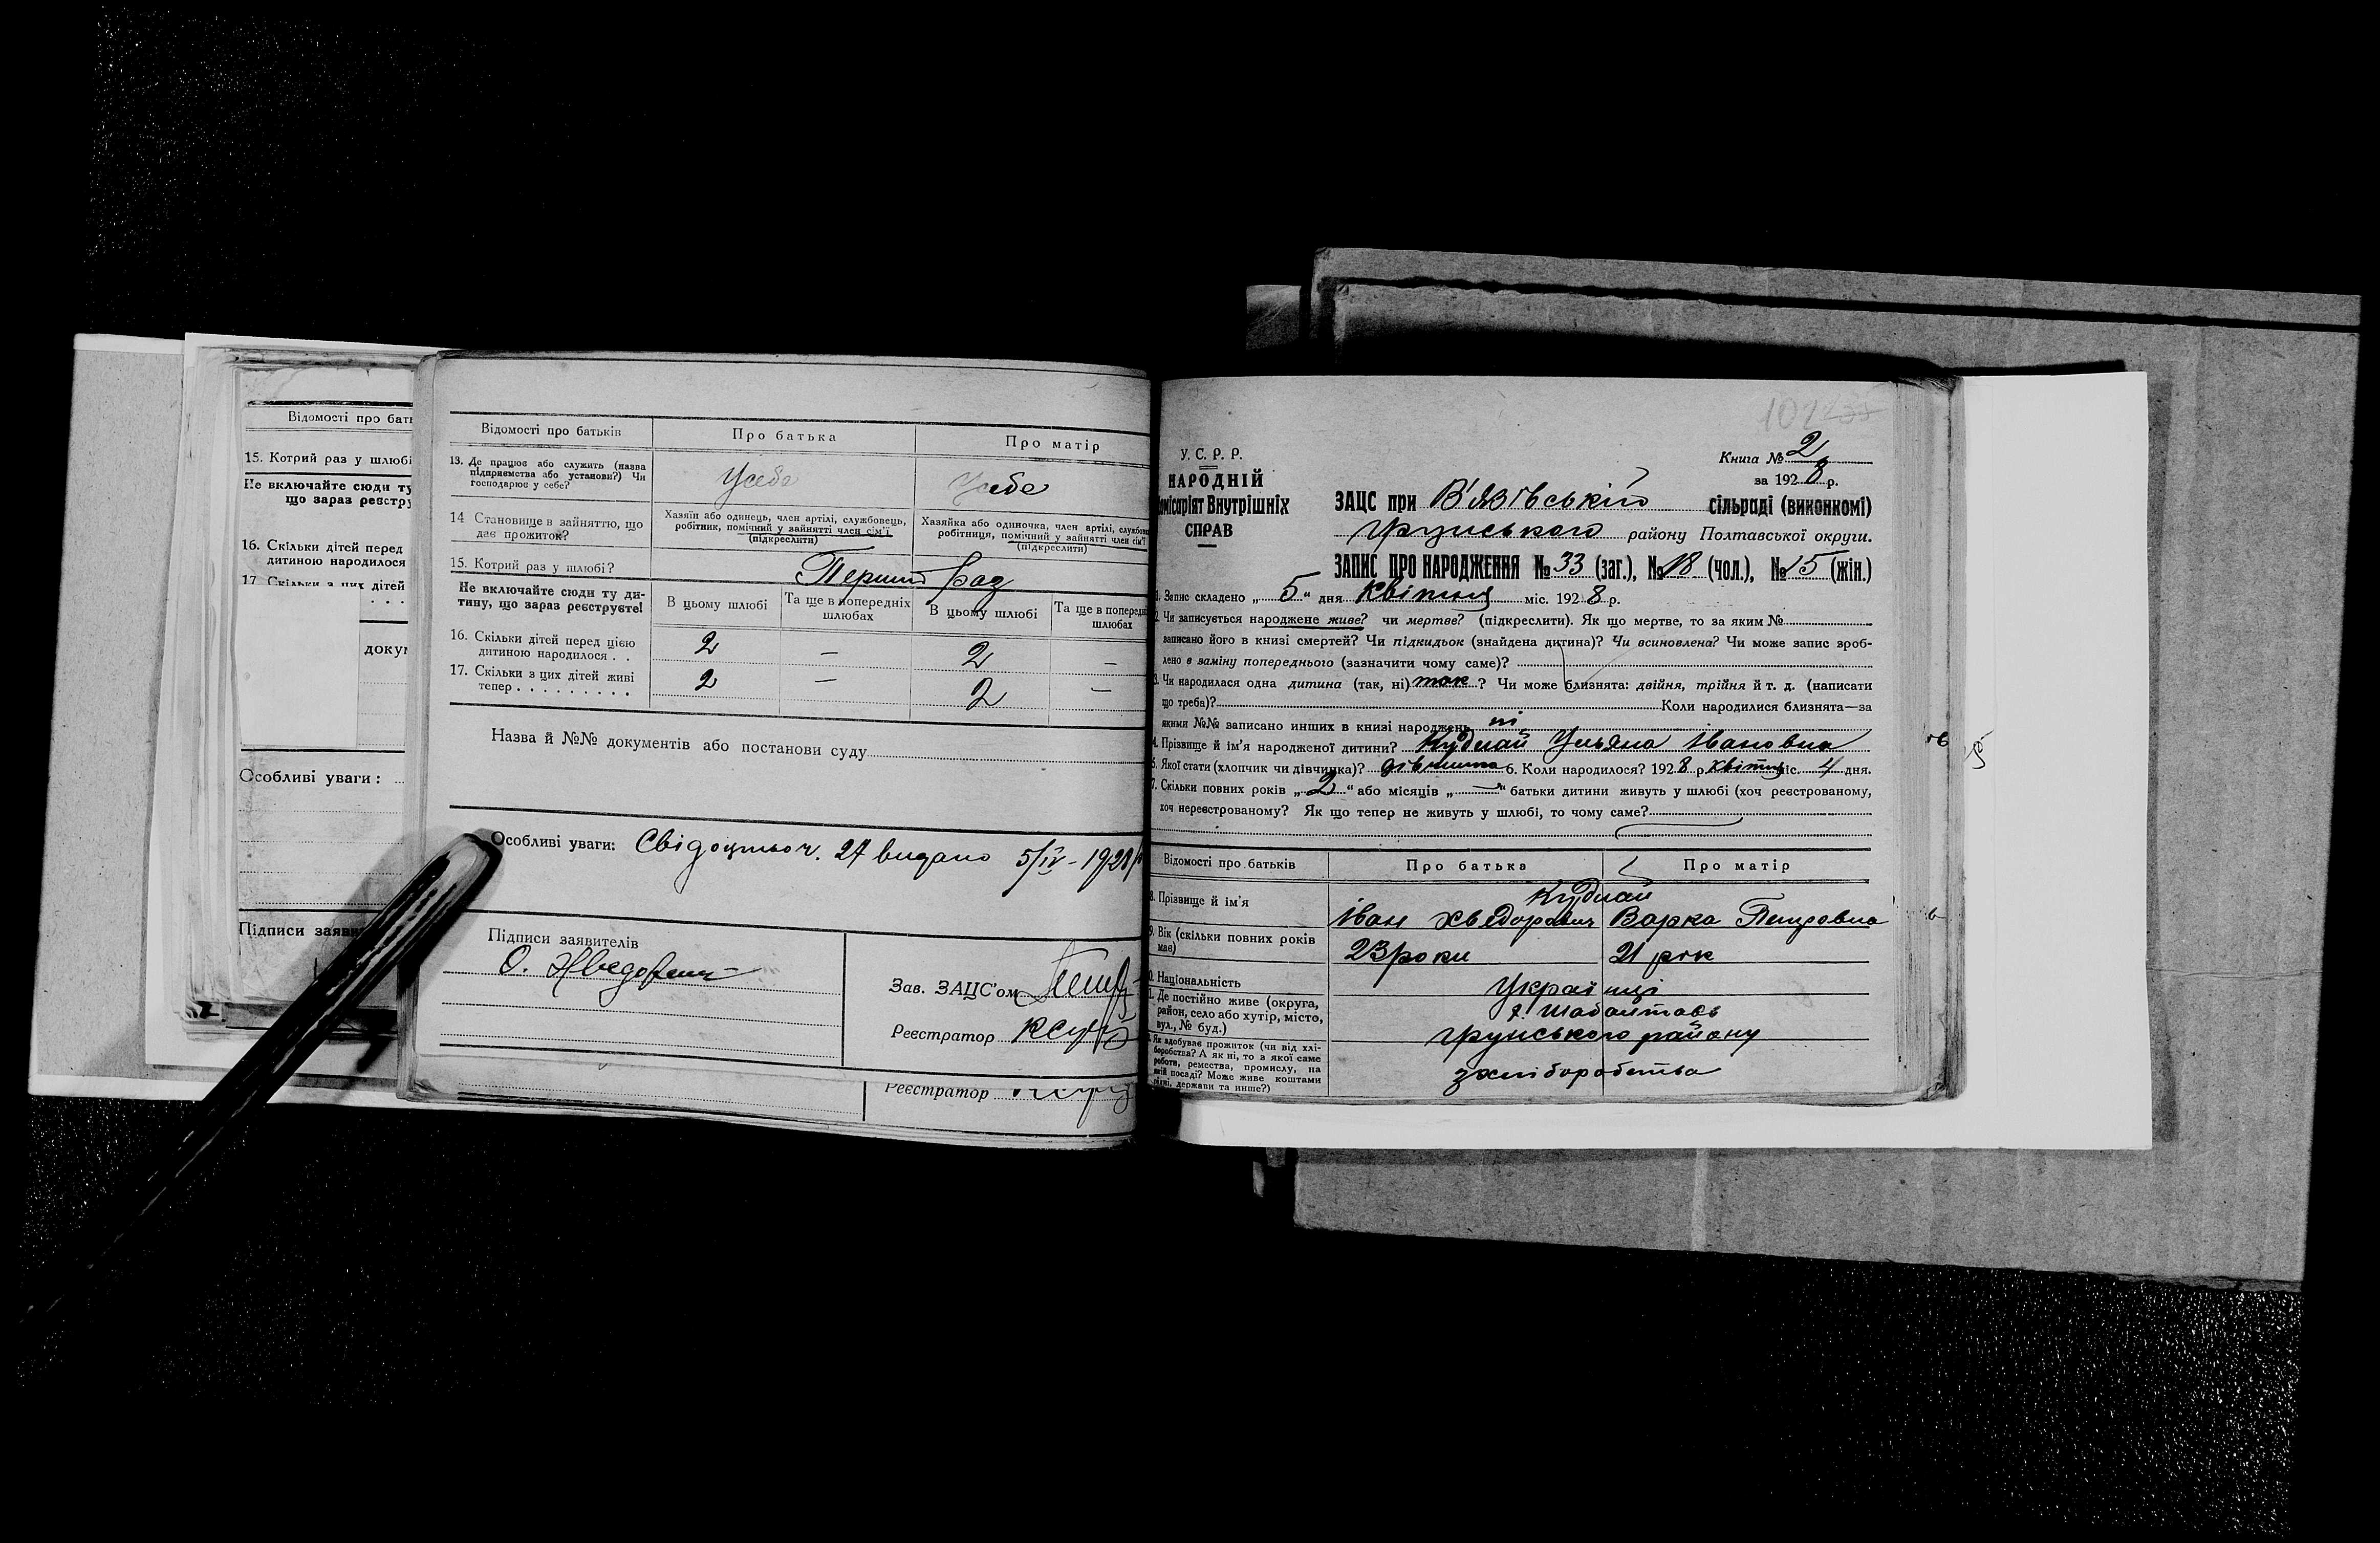 Відомості про бать
15. Котрий раз у шлюбі
Не включайте сюди ту
що зараз реєстру
16. Скільки дітей перед
дитиною народилося
17. Скільки з цих дітей
докум
Особливі уваги:
Підписи заяви
Відомості про батьків
Про батька
Про матір
13. Де працює або служить (назва
підприємства або установи?) Чи
господарює у себе?
У себе
У себе
14 Становище в зайняттю, що
дає прожиток?
Хазяїн або одинець, член артілі, службовець,
робітник, помічний у зайнятті член сім'ї
(підкреслити)
Хазяйка або одиночка, член артілі, службове
робітниця, помічний у зайнятті член сім'ї
(підкреслити)
15. Котрий раз у шлюбі?
Перший раз
Не включайте сюди ту ди-
тину, що зараз реєструєте!
В цьому шлюбі
Та ще в попередніх
шлюбах
В цьому шлюбі
Та ще в попередн
шлюбах
16. Скільки дітей перед цією
дитиною народилося . .
2 — 2 —
17. Скільки з цих дітей живі
тепер . . . . . . . . .
2 — 2 —
Назва й №№ документів або постанови суду
Особливі уваги: Свідоцтво ч. 27 видано 5/IV - 1928
Підписи заявителів
О. Хведорич
Зав. ЗАЦС'ом
Реєстратор
Реєстратор
102
У. С. Р. Р.
НАРОДНІЙ
омісаріят Внутрішніх
СПРАВ
Книга № 2
за 1928 р.
ЗАЦС при В'язівській сільраді (виконкомі)
Грунського району Полтавської округи.
ЗАПИС ПРО НАРОДЖЕННЯ № 33 (заг.), № 18 (чол.), № 15 (жін.)
1. Запис складено „ 5 “ дня Квітня міс. 1928 р.
2. Чи записується народжене живе? чи мертве? (підкреслити). Як що мертве, то за яким №
записано його в книзі смертей? Чи підкидьок (знайдена дитина)? Чи всиновлена? Чи може запис зроб-
лено в заміну попереднього (зазначити чому саме)?
3. Чи народилася одна дитина (так, ні) так ? Чи може близнята: двійня, трійня й т. д. (написати
що треба)? Коли народилися близнята—за
якими №№ записано инших в книзі народжень ні
4. Прізвище й ім'я народженої дитини? Кудлай Ульяна Івановна
5. Якої стати (хлопчик чи дівчинка)? дівчинка 6. Коли народилося? 1928 р. Квітня міс. 4 дня.
7. Скільки повних років „ 2 “ або місяців „ — “ батьки дитини живуть у шлюбі (хоч реєстрованому,
хоч нереєстрованому? Як що тепер не живуть у шлюбі, то чому саме?
Відомості про батьків
Про батька
Про матір
8. Прізвище й ім'я
Кудлай
Іван Хведорович
Варка Петровна
9. Вік (скільки повних років
має)
23 роки
21 рік
10. Національність
Українці
11. Де постійно живе (округа,
район, село або хутір, місто,
вул., № буд.)
Грунського району
12. Як здобуває прожиток (чи від хлі-
боробства? А як ні, то з якої саме
роботи, ремества, промислу, на
якій посаді? Може живе коштами
рідні, держави та инше?)
з хліборобства